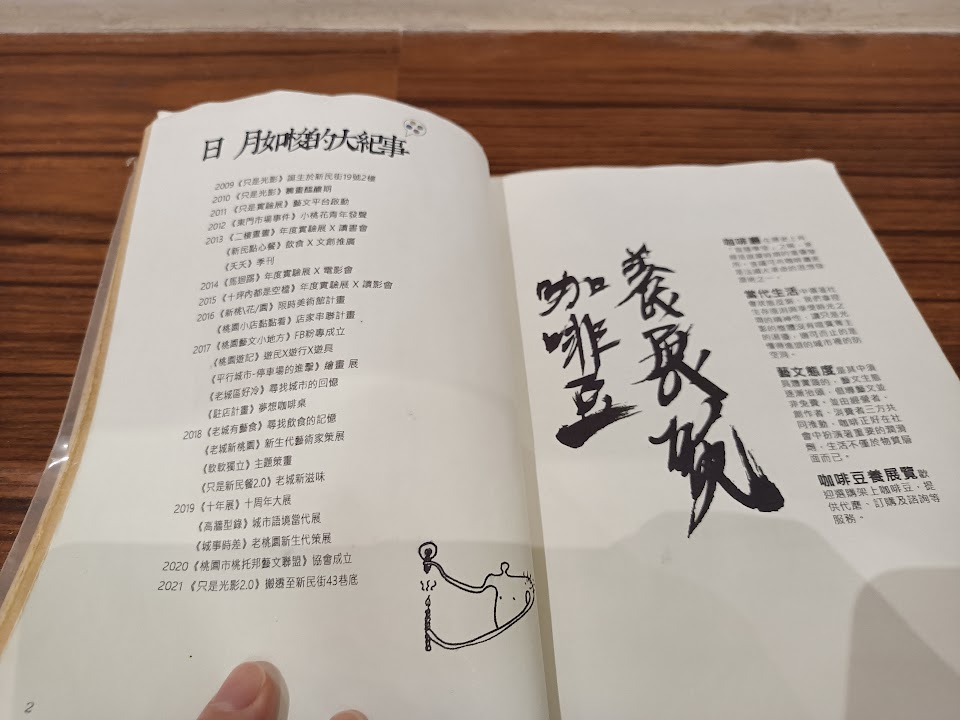 日月如梭的大紀事
2009《只是光影》誕生於新民街19號2樓
2010《只是光影》籌畫醞釀期
2011《只是實驗展》藝文平台啟動
2012《東門市場事件》小桃花青年發聲
2013《二樓畫畫》年度實驗展 X 讀書會
《新民點心餐》飲食 X 文創推廣
《夭夭》季刊
2014《馬迴露》年度實驗展 X 電影會
2015《十坪內都是空檔》年度實驗展 X 讀影會
2016《新桃\花/園》限時美術館計畫
《桃園小店點點看》店家串聯計畫
2017《桃園藝文小地方》FB粉專成立
《桃園遊記》遊民X遊行X遊具
《平行城市-停車場的進擊》繪畫 展
《老城區好冷》尋找城市的回憶
《駐店計畫》夢想咖啡桌
2018《老城有藝食》尋找飲食的記憶
《老城新桃園》新生代藝術家策展
《欸欸獨立》主題策畫
《只是新民餐2.0》老城新滋味
2019《十年展》十周年大展
《高牆型錄》城市語境當代展
《城事時差》老桃園新生代策展
2020《桃園市桃托邦藝文聯盟》協會成立
2021《只是光影2.0》搬遷至新民街43巷底
2
養展覽
咖啡豆
咖啡豆養展覽歡
迎選購架上咖啡豆，提
供代磨、訂購及諮詢等
服務。
當代生活
藝文態度
逐漸抬頭，倡導藝文並
非免費。並由經營者、
創作者、消費者三方共
同推動，咖啡正好在社
會中扮演著重要的潤滑
劑，生活不僅於物質層
面而已。